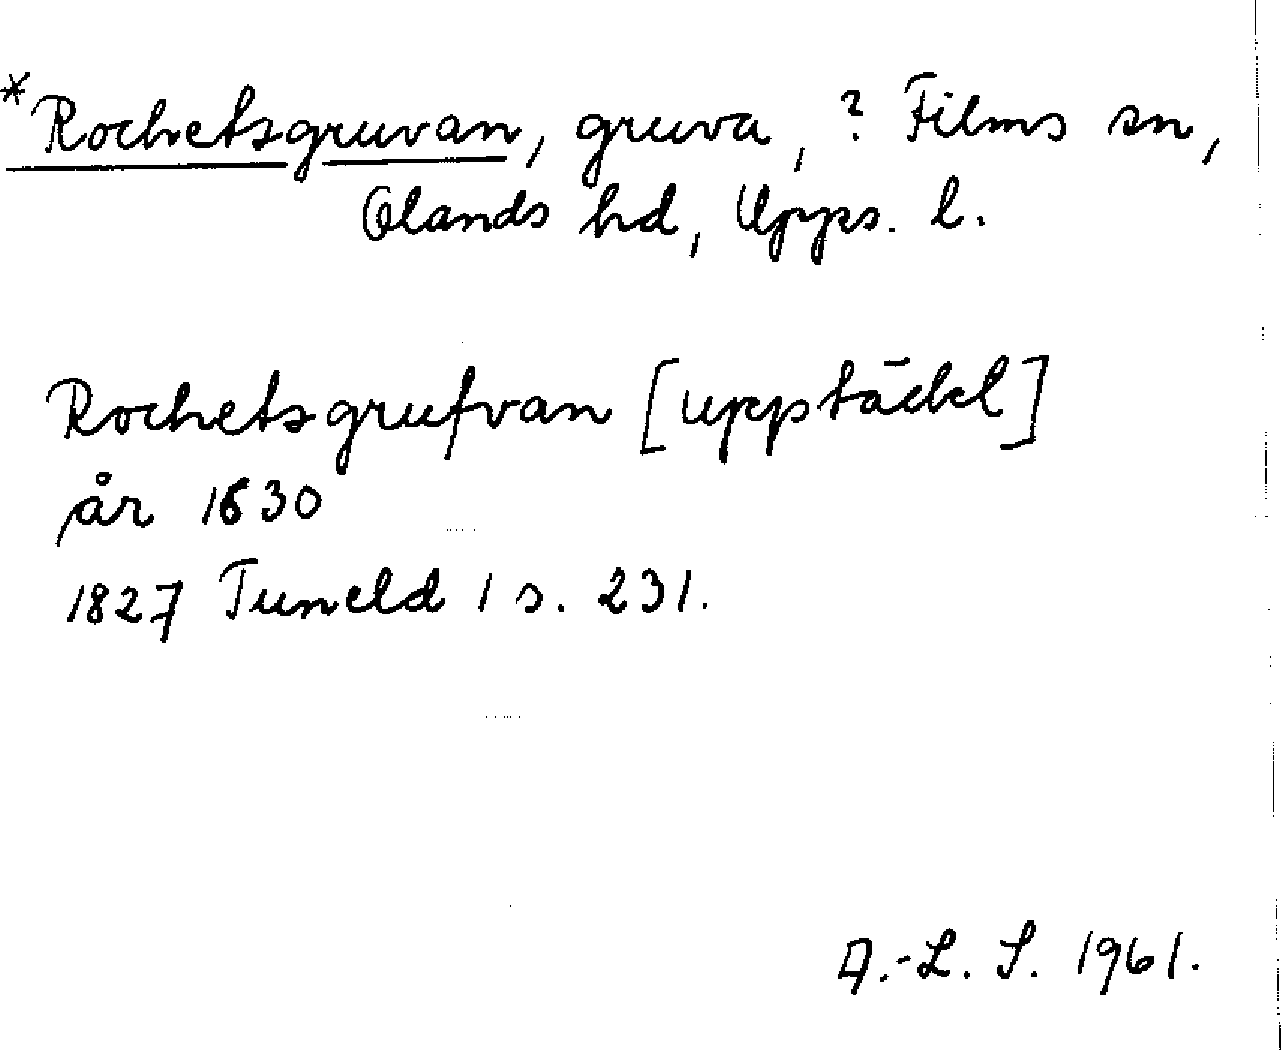 *Rochetsgruvan, gruva, ? Films sn,
Olands hd, Upps. l.
Rochetsgrufvan [upptäckt]
år 1630
1827 Tuneld 1 s. 231.
A.-L. S. 1961.